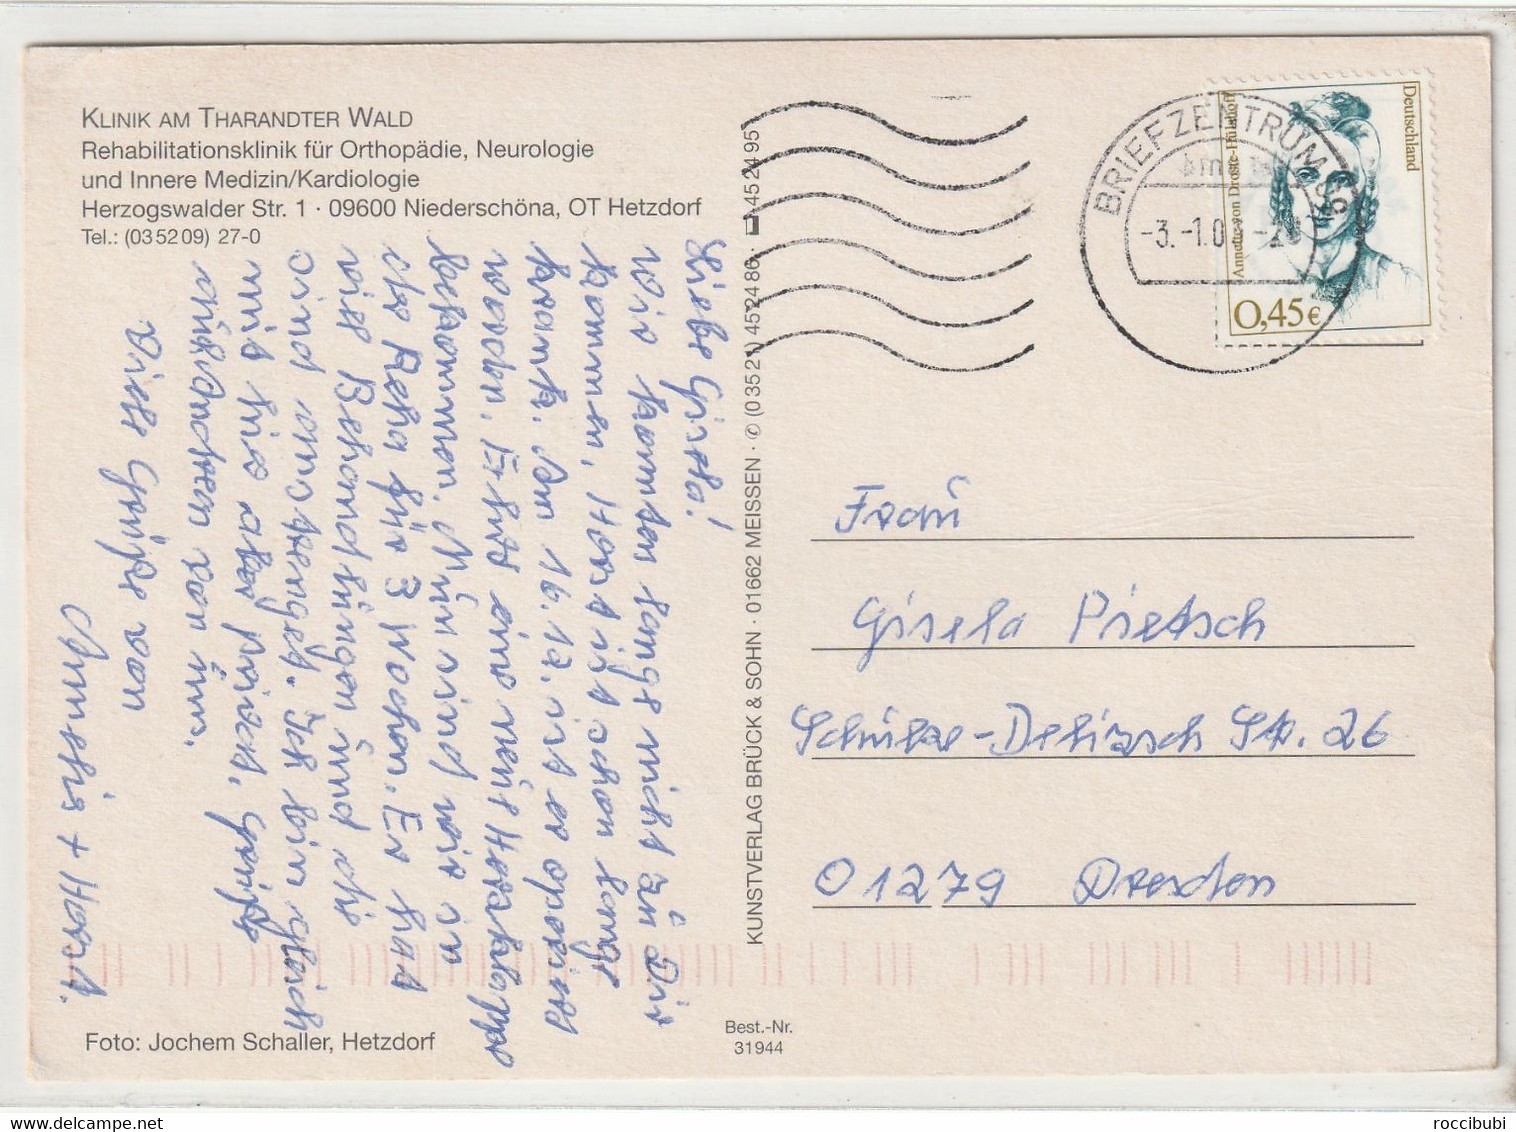 KLINIK AM THARANDTER WALD
Rehabilitationsklinik für Orthopädie, Neurologie
und Innere Medizin/Kardiologie
Herzogswalder Str. 1 · 09600 Niederschöna, OT Hetzdorf
Tel.: (03 52 09) 27-0
Liebe Gisela!
Wir konnten lange nicht zu Dir
kommen, Horst ist schon lange
krank. Am 16.12. ist er operiert
worden. Er hat eine neue Herzklappe
bekommen. Nun sind wir in
der Reha für 3 Wochen. Er hat
viel Behandlungen und die
sind anstrengend. Ich bin gleich
mit hier
von
Viele Grüße von
Annelis + Horst.
Foto: Jochem Schaller, Hetzdorf
Best.-Nr.
31944
KUNSTVERLAG BRÜCK & SOHN · 01662 MEISSEN · ✆ (0 35 21) 45 24 86 · 45 24 95
BRIEFZENTRUM
-3.-1.0
Deutschland
Annette von Droste-Hülshoff
0,45 €
Frau
Gisela Pietsch
Schulze-Delitzsch Str. 26
01279 Dresden
roccibubi